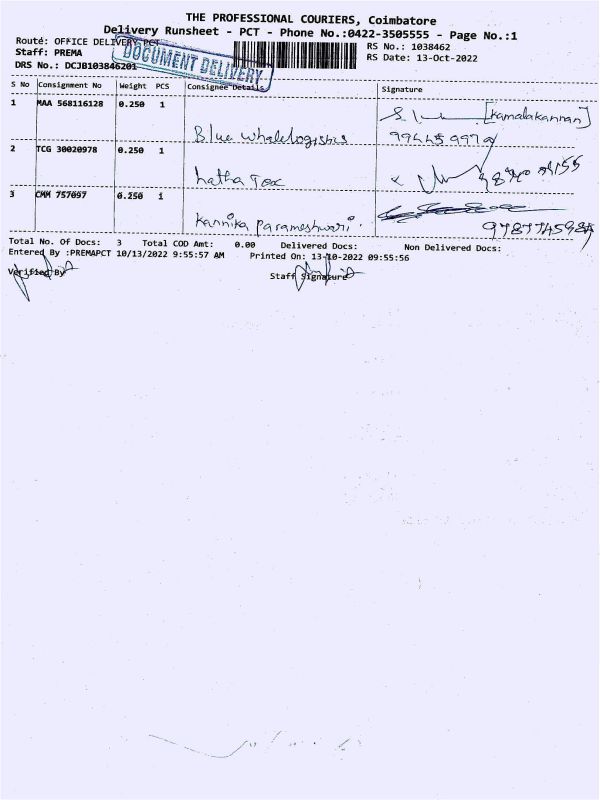 THE PROFESSIONAL COURIERS, Coimbatore
Delivery Runsheet - PCT - Phone No.:0422-3505555 - Page No.:1
Route: OFFICE DELIVERY PCT
Staff: PREMA
DRS No.: DCJB103846201
DOCUMENT DELIVERY
RS No.: 1038462
RS Date: 13-Oct-2022
S No Consignment No Weight PCS Consignee Details Signature
1 MAA 568116128 0.250 1
[Kamalakannan]
Blue Whalelogistics
2 TCG 30020978 0.250 1
hatha Tex
3 CMM 757097 0.250 1
Kannika Parameshwari.
Total No. Of Docs: 3 Total COD Amt: 0.00 Delivered Docs: Non Delivered Docs:
Entered By :PREMAPCT 10/13/2022 9:55:57 AM Printed On: 13-10-2022 09:55:56
Verified By Staff Signature